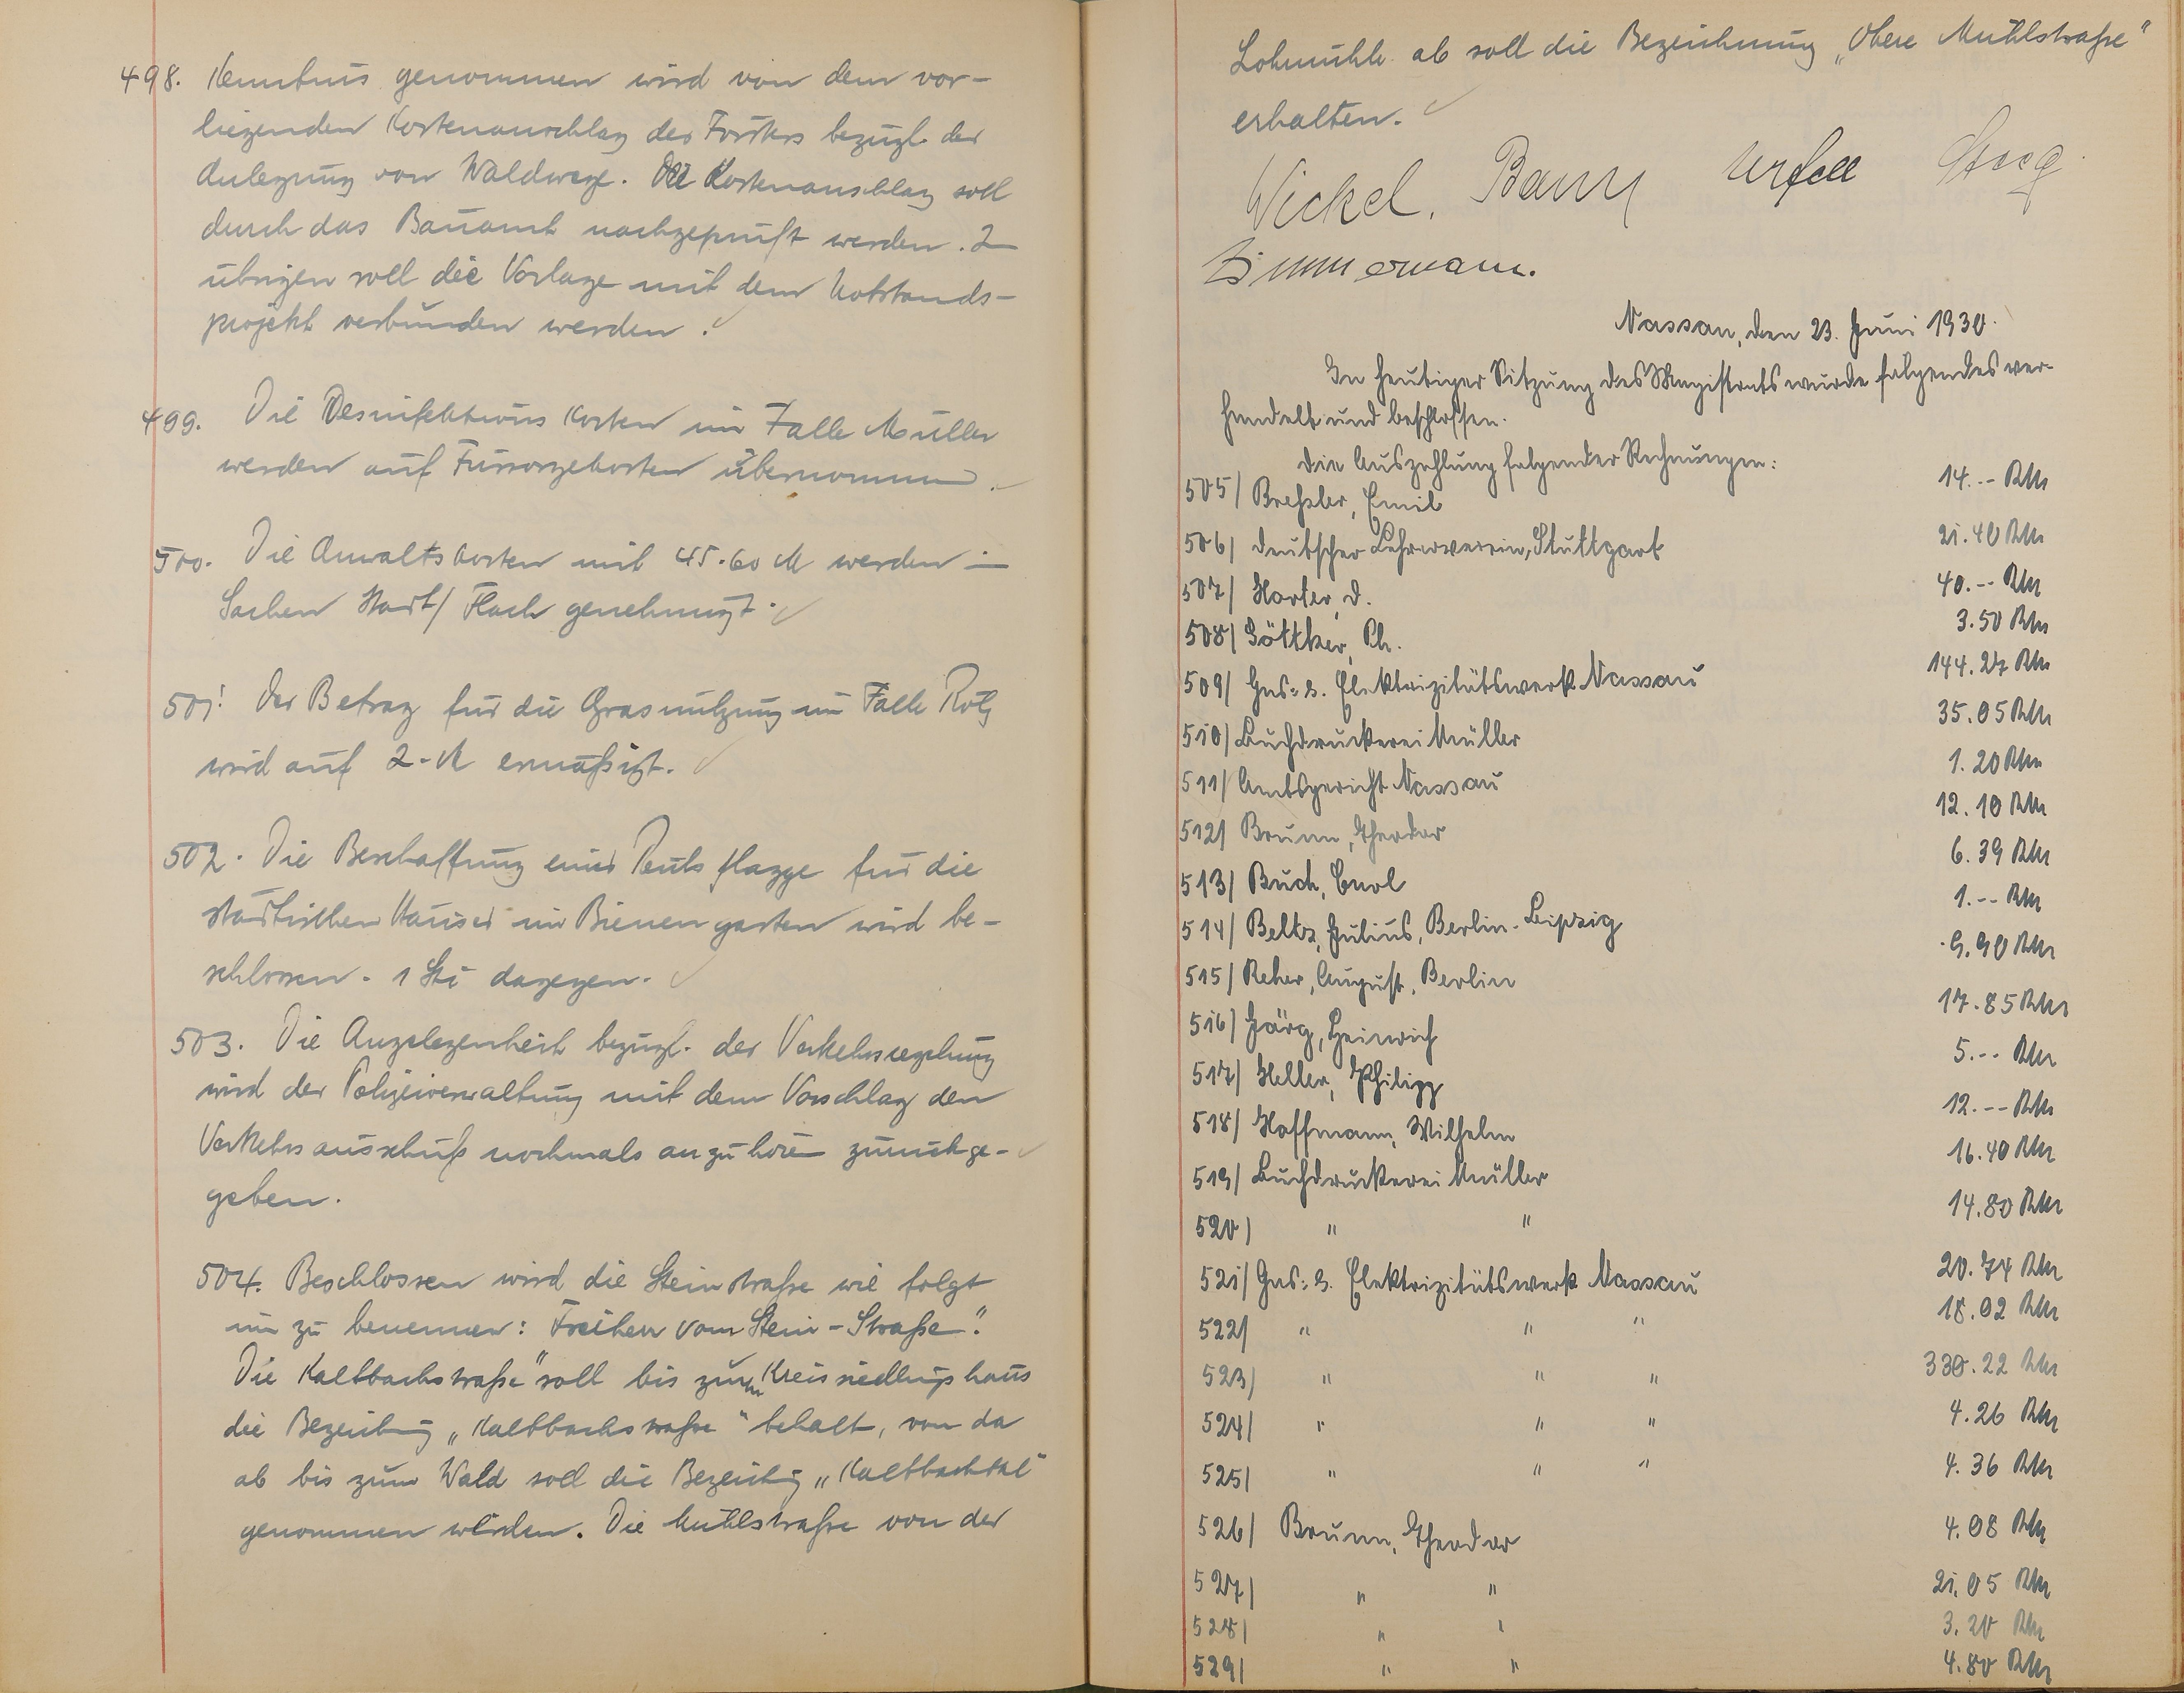 498. Kenntnis genommen wird von dem vor-
liegenden Kostenanschlag des Försters bezügl. der
Anlegung von Waldwege. Der Kostenanschlag soll
durch das Bauamt nachgeprüft werden. I
übrigen soll die Vorlage mit dem Notstands-
projekt verbunden werden.
499. Die Desinfektions Kosten im Falle Müller
werden auf Fürsorgekosten übernommen.
500. Die Anwaltskosten mit 45.60 M werden in
Sachen Stadt/ Flach genehmigt.
501. Der Betrag für die Grasnutzung im Falle
wird auf 2.- M ermäßigt.
502. Die Beschaffung einer flagge für die
städtischen Häuser im Bienengarten wird be-
schlossen. 1 Sti dagegen.
503. Die Angelegenheit bezügl. der Verkehrsregelung
wird der Polizeiverwaltung mit dem Vorschlag den
Verkehrsausschuß nochmals anzuhören zurückge-
geben.
504. Beschlossen wird die Steinstraße wie folgt
um zu benennen: Freiherr vom Stein-Straße."
Die Kaltbachstraße" soll bis zum Kreissiedlungshaus
die Bezeichnung „Kaltbachstraße" behalt, von da
ab bis zum Wald soll die Bezeichng „Kaltbachtal"
genommen werden. Die Mühlstraße von der
Lohmühle ab soll die Bezeichnung „Obere Mühlstraße"
erhalten.
Wickel. Baum Unfell
Zimmermann.
Nassau, den 23. Juni 1930.
In heutiger Sitzung des Magistrats wurde folgendes ver-
handelt und beschlossen.
Die Auszahlung folgender Rechnungen:
505/ Breßler, Emil 14.-- RM
506/ Deutscher Lehrerverein, Stuttgart 21.40 RM
507/ Horter, D. 40.-- RM
508/ Göttker, Ph. 3.50 RM
509/ Gas= & Elektrizitätswerk Nassau 144.27 RM
510/ Buchdruckerei Müller 35.05 RM
511/ Amtsgericht Nassau 1.20 RM
512/ Brunn, Theodor 12.10 RM
513/ Buch, Carl 6.39 RM
514/ Beltz, Julius, Berlin-Leipzig 1.-- RM
515/ Reher, August, Berlin 9.90 RM
516/ Jörg, Heinrich 17.85 RM
517/ Heller, Philipp 5.-- RM
518/ Hoffmann, Wilhelm 12.-- RM
519/ Buchdruckerei Müller 16.40 RM
520/ " " 14.80 RM
521/ Gas= & Elektrizitätswerk Nassau 20.74 RM
522/ " " " 18.02 RM
523/ " " " 330.22 RM
524/ " " " 4.26 RM
525/ " " " 4.36 RM
526/ Brunn, Theodor 4.08 RM
527/ " " 21.05 RM
528/ " " 3.20 RM
529/ " " 4.80 RM